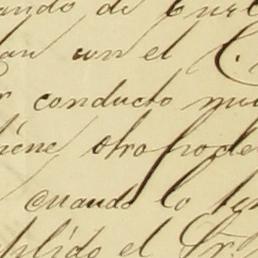 ando de
con el
conducto
tiene otro pode
Cuando lo
plido el Sr.